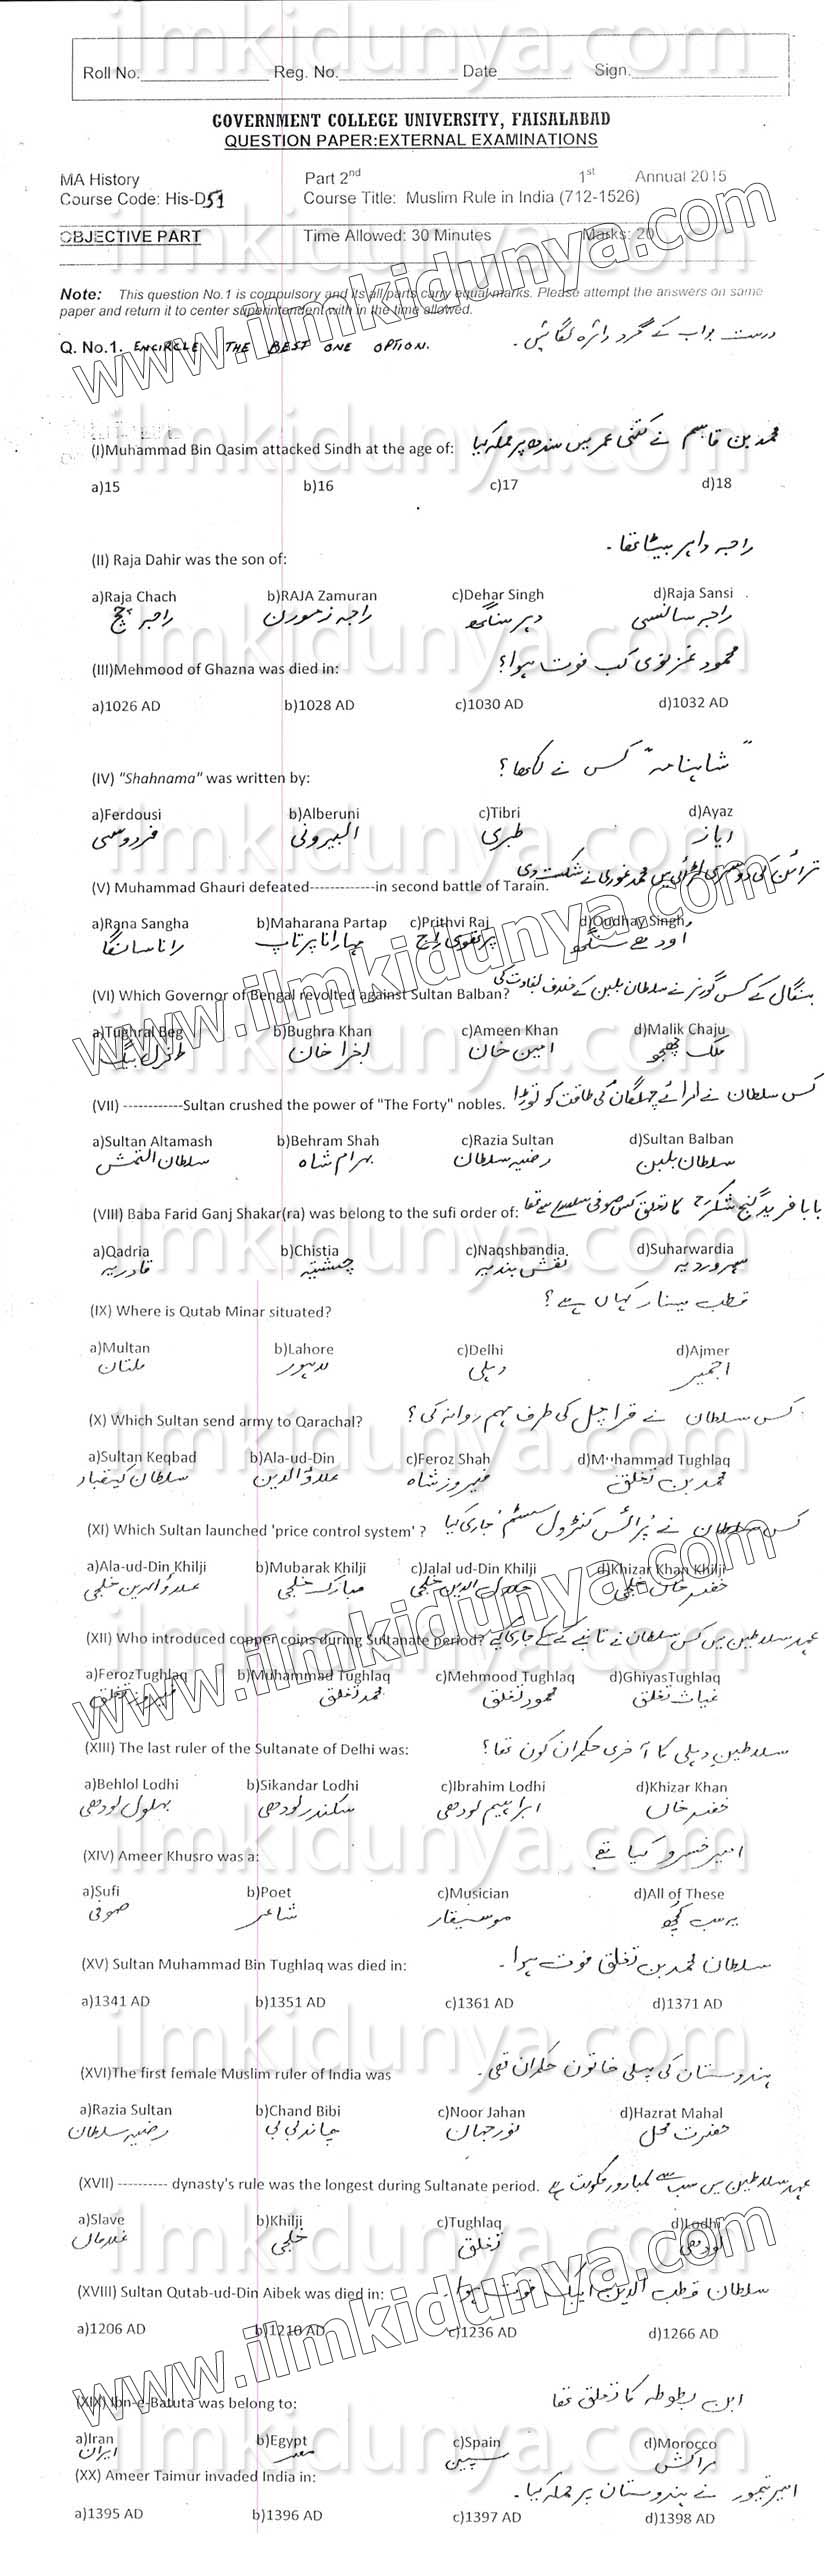 Roll No. Reg. No. Date Sign.
GOVERNMENT COLLEGE UNIVERSITY, FAISALABAD
QUESTION PAPER:EXTERNAL EXAMINATIONS
MA History Part 2nd 1st Annual 2015
Course Code: His-D51 Course Title: Muslim Rule in India (712-1526)
OBJECTIVE PART Time Allowed: 30 Minutes Marks: 20
Note: This question No.1 is compulsory and its all parts carry equal marks. Please attempt the answers on same
paper and return it to center superintendent with in the time allowed.
Q. No.1. ENCIRCLE THE BEST ONE OPTION. درست جواب کے گرد دائرہ لگائیں۔
(I)Muhammad Bin Qasim attacked Sindh at the age of: محمد بن قاسم نے کتنی عمر میں سندھ پر حملہ کیا
a)15 b)16 c)17 d)18
(II) Raja Dahir was the son of: راجہ داہر بیٹا تھا۔
a)Raja Chach b)RAJA Zamuran c)Dehar Singh d)Raja Sansi
راجہ چچ راجہ زمورن دہر سنگھ راجہ سانسی
(III)Mehmood of Ghazna was died in: محمود غزنوی کب فوت ہوا؟
a)1026 AD b)1028 AD c)1030 AD d)1032 AD
(IV) "Shahnama" was written by: "شاہنامہ" کس نے لکھا؟
a)Ferdousi b)Alberuni c)Tibri d)Ayaz
فردوسی البیرونی طبری ایاز
(V) Muhammad Ghauri defeated-------------in second battle of Tarain. ترائن کی دوسری لڑائی میں محمد غوری نے شکست دی
a)Rana Sangha b)Maharana Partap c)Prithvi Raj d)Oudhay Singh
رانا سانگا مہارانا پرتاپ پرتھوی راج اودھے سنگھ
(VI) Which Governor of Bengal revolted against Sultan Balban? بنگال کے کس گورنر نے سلطان بلبن کے خلاف بغاوت کی
a)Tughral Beg b)Bughra Khan c)Ameen Khan d)Malik Chaju
طغرل بیگ بغرا خان امین خان ملک چھجو
(VII) ------------Sultan crushed the power of "The Forty" nobles. کس سلطان نے امرائے چہلگان کی طاقت کو توڑا
a)Sultan Altamash b)Behram Shah c)Razia Sultan d)Sultan Balban
سلطان التمش بہرام شاہ رضیہ سلطان سلطان بلبن
(VIII) Baba Farid Ganj Shakar(ra) was belong to the sufi order of: بابا فرید گنج شکرؒ کا تعلق کس صوفی سلسلے سے تھا
a)Qadria b)Chistia c)Naqshbandia. d)Suharwardia
قادریہ چشتیہ نقش بندیہ سہروردیہ
(IX) Where is Qutab Minar situated? قطب مینار کہاں ہے؟
a)Multan b)Lahore c)Delhi d)Ajmer
ملتان لاہور دہلی اجمیر
(X) Which Sultan send army to Qarachal? کس سلطان نے قراچل کی طرف مہم روانہ کی؟
a)Sultan Keqbad b)Ala-ud-Din c)Feroz Shah d)Muhammad Tughlaq
سلطان کیقباد علاؤالدین فیروز شاہ محمد بن تغلق
(XI) Which Sultan launched 'price control system' ? کس سلطان نے پرائس کنٹرول سسٹم جاری کیا
a)Ala-ud-Din Khilji b)Mubarak Khilji c)Jalal ud-Din Khilji d)Khizar Khan Khilji
علاؤالدین خلجی مبارک خلجی جلال الدین خلجی خضر خاں خلجی
(XII) Who introduced copper coins during Sultanate period? عہد سلاطین میں کس سلطان نے تانبے کے سکے جاری کیے
a)FerozTughlaq b)Muhammad Tughlaq c)Mehmood Tughlaq d)GhiyasTughlaq
فیروز تغلق محمد تغلق محمود تغلق غیاث تغلق
(XIII) The last ruler of the Sultanate of Delhi was: سلاطین دہلی کا آخری حکمران کون تھا؟
a)Behlol Lodhi b)Sikandar Lodhi c)Ibrahim Lodhi d)Khizar Khan
بہلول لودھی سکندر لودھی ابراہیم لودھی خضر خاں
(XIV) Ameer Khusro was a: امیر خسرو کیا تھے
a)Sufi b)Poet c)Musician d)All of These
صوفی شاعر موسیقار یہ سب کچھ
(XV) Sultan Muhammad Bin Tughlaq was died in: سلطان محمد بن تغلق فوت ہوا۔
a)1341 AD b)1351 AD c)1361 AD d)1371 AD
(XVI)The first female Muslim ruler of India was ہندوستان کی پہلی خاتون حکمران تھی۔
a)Razia Sultan b)Chand Bibi c)Noor Jahan d)Hazrat Mahal
رضیہ سلطان چاند بی بی نور جہان حضرت محل
(XVII) ---------- dynasty's rule was the longest during Sultanate period. عہد سلاطین میں سب سے لمبا دور حکومت ہے
a)Slave b)Khilji c)Tughlaq d)Lodhi
غلاماں خلجی تغلق لودھی
(XVIII) Sultan Qutab-ud-Din Aibek was died in: سلطان قطب الدین ایبک فوت ہوا
a)1206 AD b)1210 AD c)1236 AD d)1266 AD
(XIX) Ibn-e-Batuta was belong to: ابن بطوطہ کا تعلق تھا
a)Iran b)Egypt c)Spain d)Morocco
ایران مصر سپین مراکش
(XX) Ameer Taimur invaded India in: امیر تیمور نے ہندوستان پر حملہ کیا۔
a)1395 AD b)1396 AD c)1397 AD d)1398 AD
ilmkidunya.com
www.ilmkidunya.com